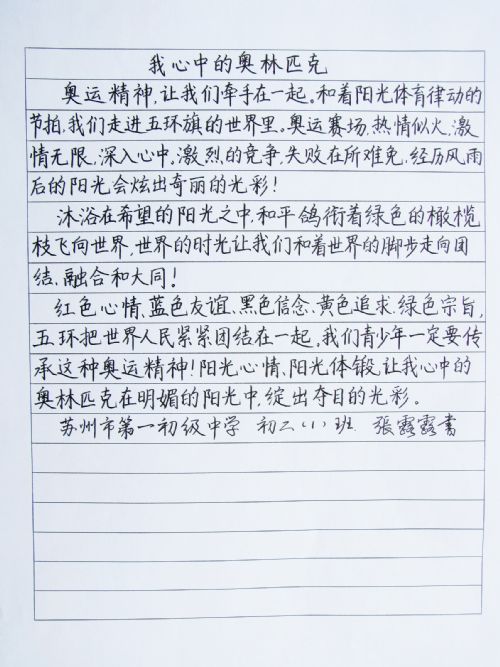 我心中的奥林匹克
奥运精神,让我们牵手在一起。和着阳光体育律动的
节拍,我们走进五环旗的世界里。奥运赛场,热情似火,激
情无限,深入心中,激烈的竞争,失败在所难免,经历风雨
后的阳光会炫出奇丽的光彩!
沐浴在希望的阳光之中,和平鸽衔着绿色的橄榄
枝飞向世界,世界的时光让我们和着世界的脚步走向团
结、融合和大同!
红色心情、蓝色友谊、黑色信念、黄色追求、绿色宗旨,
五环把世界人民紧紧团结在一起。我们青少年一定要传
承这种奥运精神!阳光心情、阳光体锻,让我心中的
奥林匹克在明媚的阳光中,绽出夺目的光彩。
苏州市第一初级中学 初二(1)班 張露露書